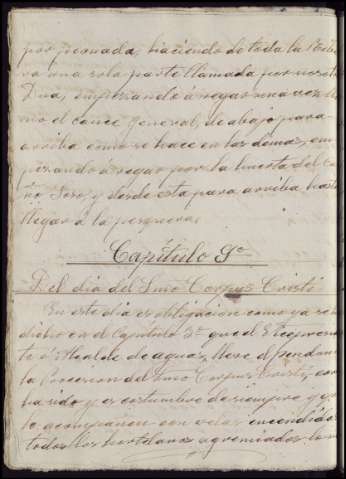 por peonada, haciendo de toda la
va una sola parte llamada por nosotros
Dua, empezando á regar una vez
el cauce general, de abajo para
arriba como se hace en las demas, em
pezando á regar por la huerta del Ca
ño Seco, y desde esta para arriba hasta
llegar á la pesquera.
Capítulo 9º
Del dia del Smo Corpus Cristi
En este dia es obligacion como ya se
dicho en el Capitulo 3º que el
te ó Alcalde de aguas, lleve el pendon
la Procesion del Smo Corpus Cristi,
y es costumbre de siempre
le acompañan con velas encendidas
todos los hortelanos agremiados